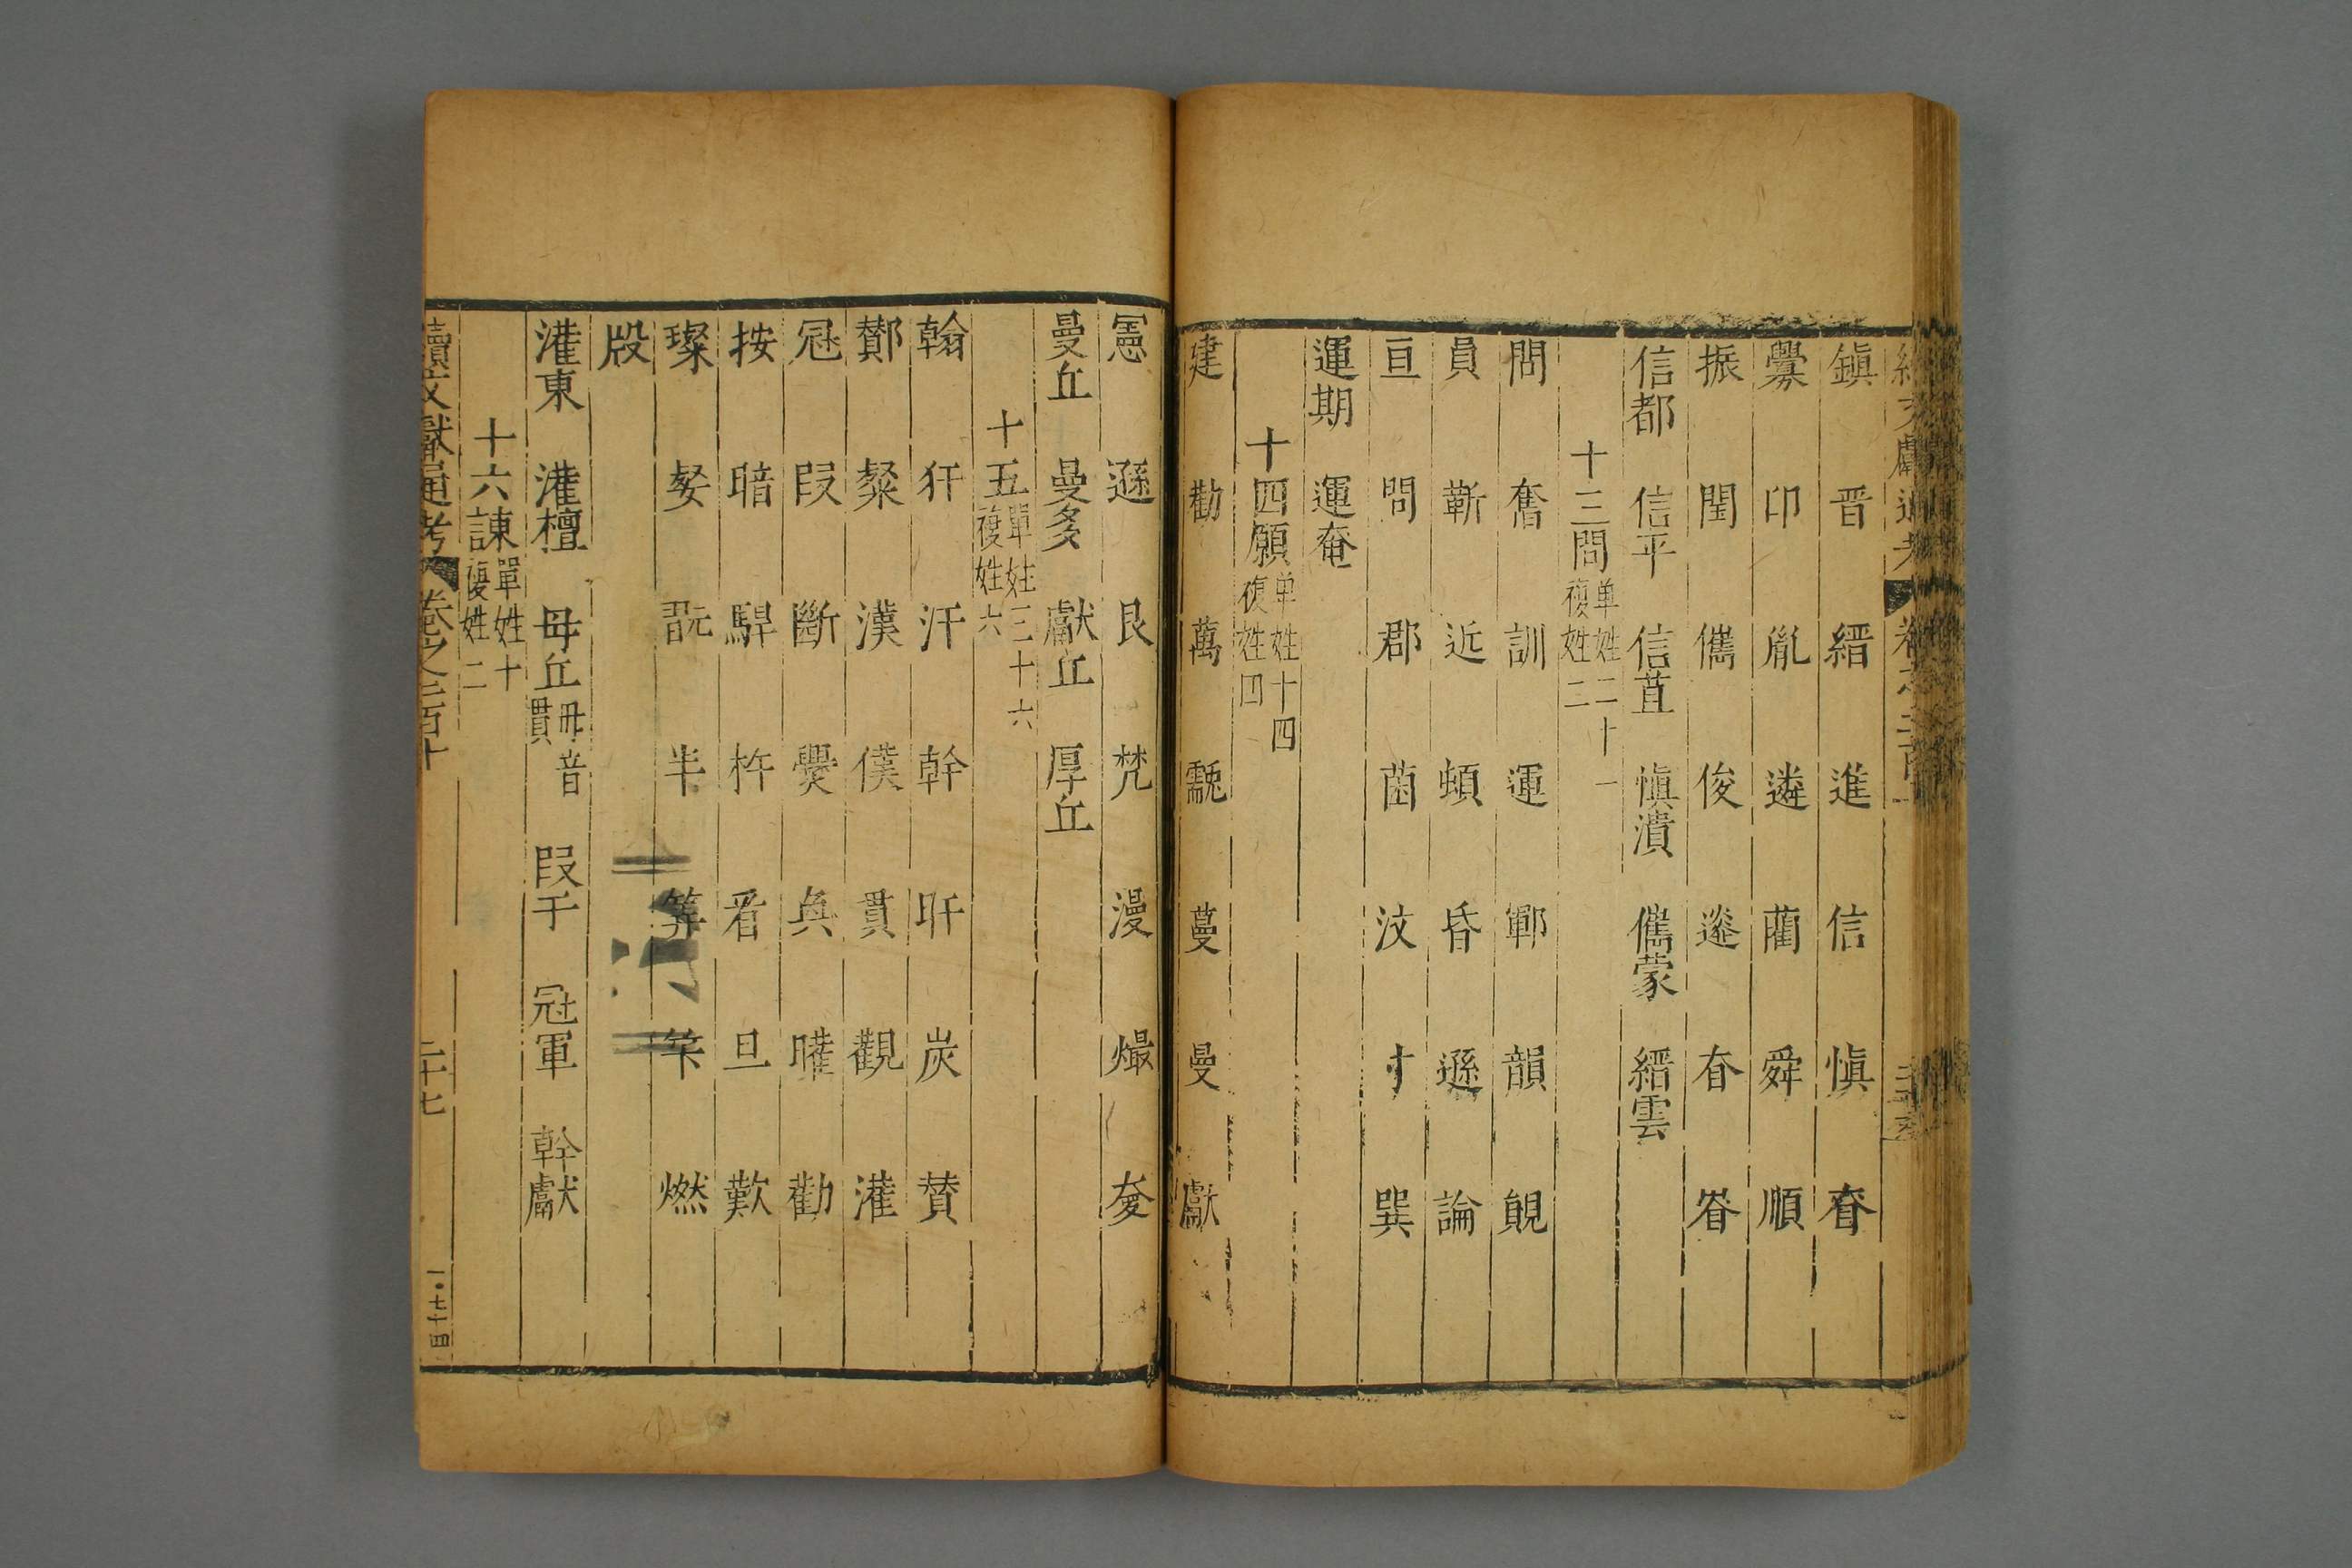 續文獻通考 卷之二百十
鎮 晋 縉 進 信 慎 眘
釁 印 胤 遴 藺 舜 順
振 閏 儁 俊 逡
信都 信平 信苴 慎潰 儁蒙 縉雲
十三問 单姓二十一 複姓二
問 奮 訓 運 鄆 韻 䚋
員 靳 近 頓 昏 遜 論
亘 問 郡 菌 汶 寸 巽
運期 運奄
十四願 单姓十四 複姓四
建 勸 萬 蔓 曼 獻
憲 遜 艮 梵 漫
曼丘 曼多 獻丘 厚丘
十五 單姓三十六 複姓六
翰 犴 汗 幹 旰 炭 賛
酇 粲 漢 貫 觀 灌
冠 段 斷 爨 奐 矔 勸
按 暗 駻 杵 看 旦 歎
璨 半 筭 燃
灌東 灌檀 毋丘 毋音貫 段干 冠軍 幹獻
十六諫 單姓十 複姓二
續文獻通考 卷之二百十 二十七 一・七十四